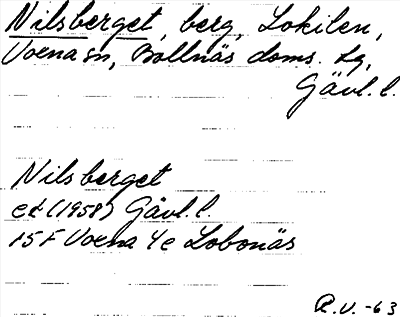 Nilsberget, berg, Lokilen,
Voxna sn, Bollnäs doms. Lg,
Gävl. l.
Nilsberget
ek (1958) Gävl. l.
15F Voxna 4e Lobonäs
R.V. -63